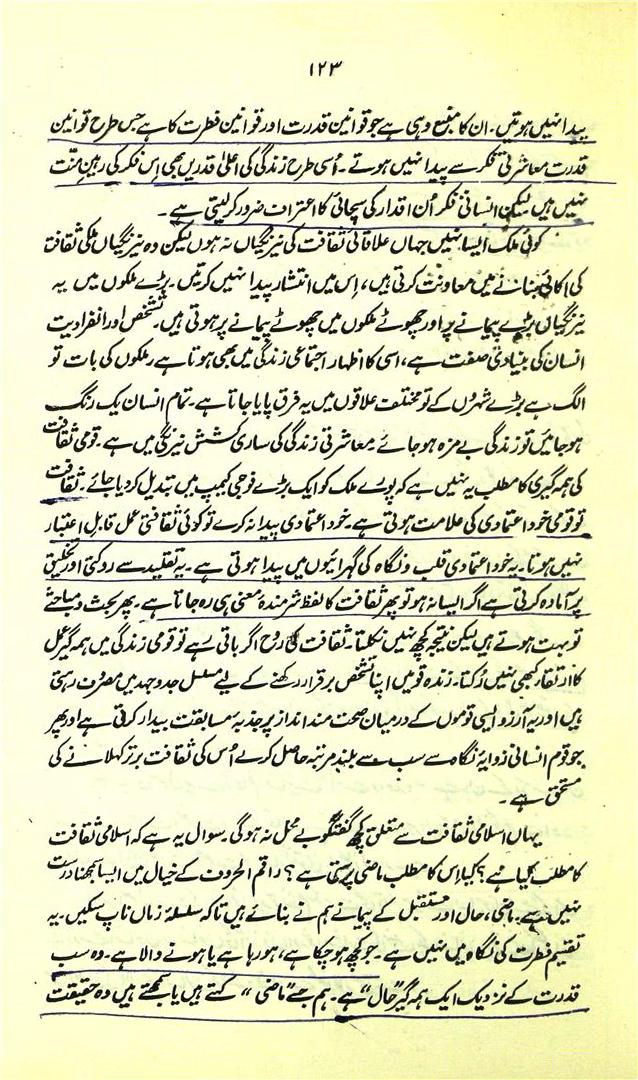 ۱۲۳
پیدا نہیں ہوتیں۔ ان کا منبع وہی ہے جو قوانین قدرت اور قوانین فطرت کا ہے جس طرح قوانین
قدرت معاشرتی فکر سے پیدا نہیں ہوتے۔ اُسی طرح زندگی کی اعلیٰ قدریں بھی اِس فکر کی رہینِ منّت
نہیں ہیں لیکن انسانی فکر اُن اقدار کی سچائی کا اعتراف ضرور کر لیتی ہے۔
کوئی ملک ایسا نہیں جہاں علاقائی ثقافت کی نیرنگیاں نہ ہوں لیکن وہ نیرنگیاں ملکی ثقافت
کی اکائی بنانے میں معاونت کرتی ہیں، اِس میں انتشار پیدا نہیں کرتیں۔ بڑے ملکوں میں یہ
نیرنگیاں بڑے پیمانے پر اور چھوٹے ملکوں میں چھوٹے پیمانے پر ہوتی ہیں۔ تشخص اور انفرادیت
انسان کی بنیادی صفت ہے، اسی کا اظہار اجتماعی زندگی میں بھی ہوتا ہے، ملکوں کی بات تو
الگ ہے بڑے شہروں کے تو مختلف علاقوں میں یہ فرق پایا جاتا ہے۔ تمام انسان یک رنگ
ہو جائیں تو زندگی بے مزہ ہو جائے۔ معاشرتی زندگی کی ساری کشش نیرنگی میں ہے۔ قومی ثقافت
کی ہمہ گیری کا مطلب یہ نہیں ہے کہ پورے ملک کو ایک بڑے فوجی کیمپ میں تبدیل کر دیا جائے۔ ثقافت
تو قومی خود اعتمادی کی علامت ہوتی ہے۔ خود اعتمادی پیدا نہ کرے تو کوئی ثقافتی عمل قابلِ اعتبار
نہیں ہوتا۔ یہ خود اعتمادی قلب و نگاہ کی گہرائیوں میں پیدا ہوتی ہے۔ یہ تقلید سے روکتی اور تخلیق
پر آمادہ کرتی ہے اگر ایسا نہ ہو تو پھر ثقافت کا لفظ شرمندہ معنی ہی رہ جاتا ہے۔ پھر بحث و مباحثے
تو بہت ہوتے ہیں لیکن نتیجہ کچھ نہیں نکلتا۔ ثقافت کی رُوح اگر باقی رہے تو قومی زندگی میں ہمہ گیر عمل
کا ارتقاء کبھی نہیں رُکتا۔ زندہ قومیں اپنا تشخص برقرار رکھنے کے لیے مسلسل جدوجہد میں مصروف رہتی
ہیں اور یہ آرزو ایسی قوموں کے درمیان صحت مند انداز پر جذبہ مسابقت بیدار کرتی ہے اور پھر
جو قوم انسانی زوایۂ نگاہ سے سب سے بلند مرتبہ حاصل کر لے اُس کی ثقافت برتر کہلانے کی
مستحق ہے۔
یہاں اسلامی ثقافت سے متعلق کچھ گفتگو بے محل نہ ہوگی۔ سوال یہ ہے کہ اسلامی ثقافت
کا مطلب کیا ہے؟ کیا اِس کا مطلب ماضی پرستی ہے؟ راقم الحروف کے خیال میں ایسا سمجھنا درست
نہیں ہے۔ ماضی، حال اور مستقبل کے پیمانے ہم نے بنائے ہیں تاکہ سلسلۂ زماں ناپ سکیں۔ یہ
تقسیم فطرت کی نگاہ میں نہیں ہے۔ جو کچھ ہو چکا ہے، ہو رہا ہے یا ہونے والا ہے۔ وہ سب
قدرت کے نزدیک ایک ہمہ گیر "حال" ہے۔ ہم جسے "ماضی" کہتے ہیں یا سمجھتے ہیں وہ حقیقت